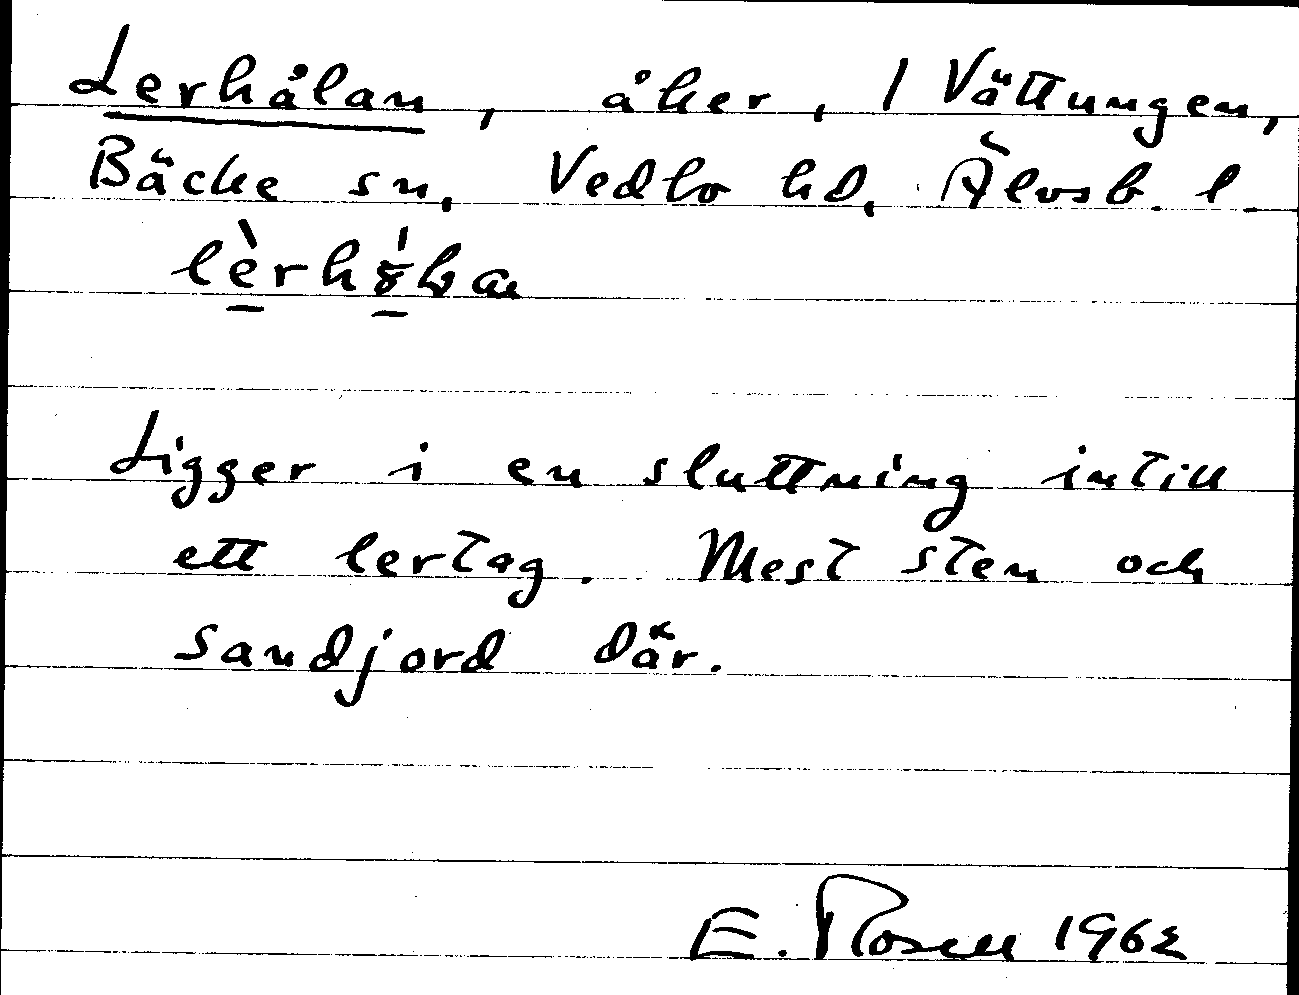 Lerhålan, åker, 1 Vättungen,
Bäcke sn, Vedbo hd, Älvsb. l.
Ligger i en sluttning intill
ett lertag. Mest sten och
sandjord där.
E. Rosell 1962